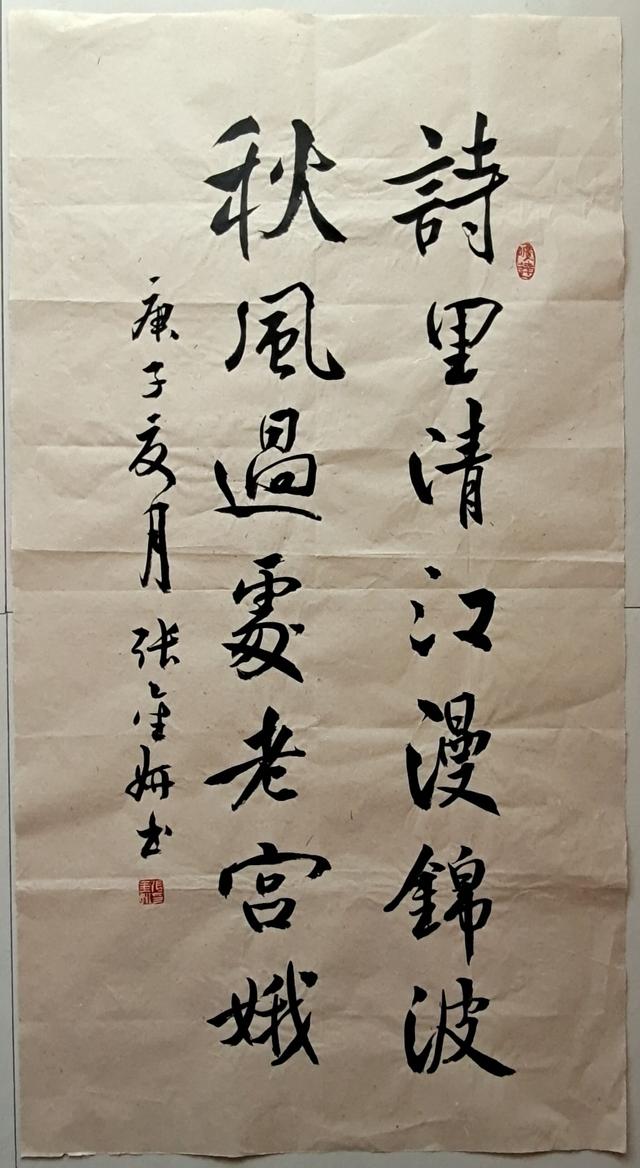 詩里清江漫錦波
秋風過處老宮娥
庚子亥月 张金妍书